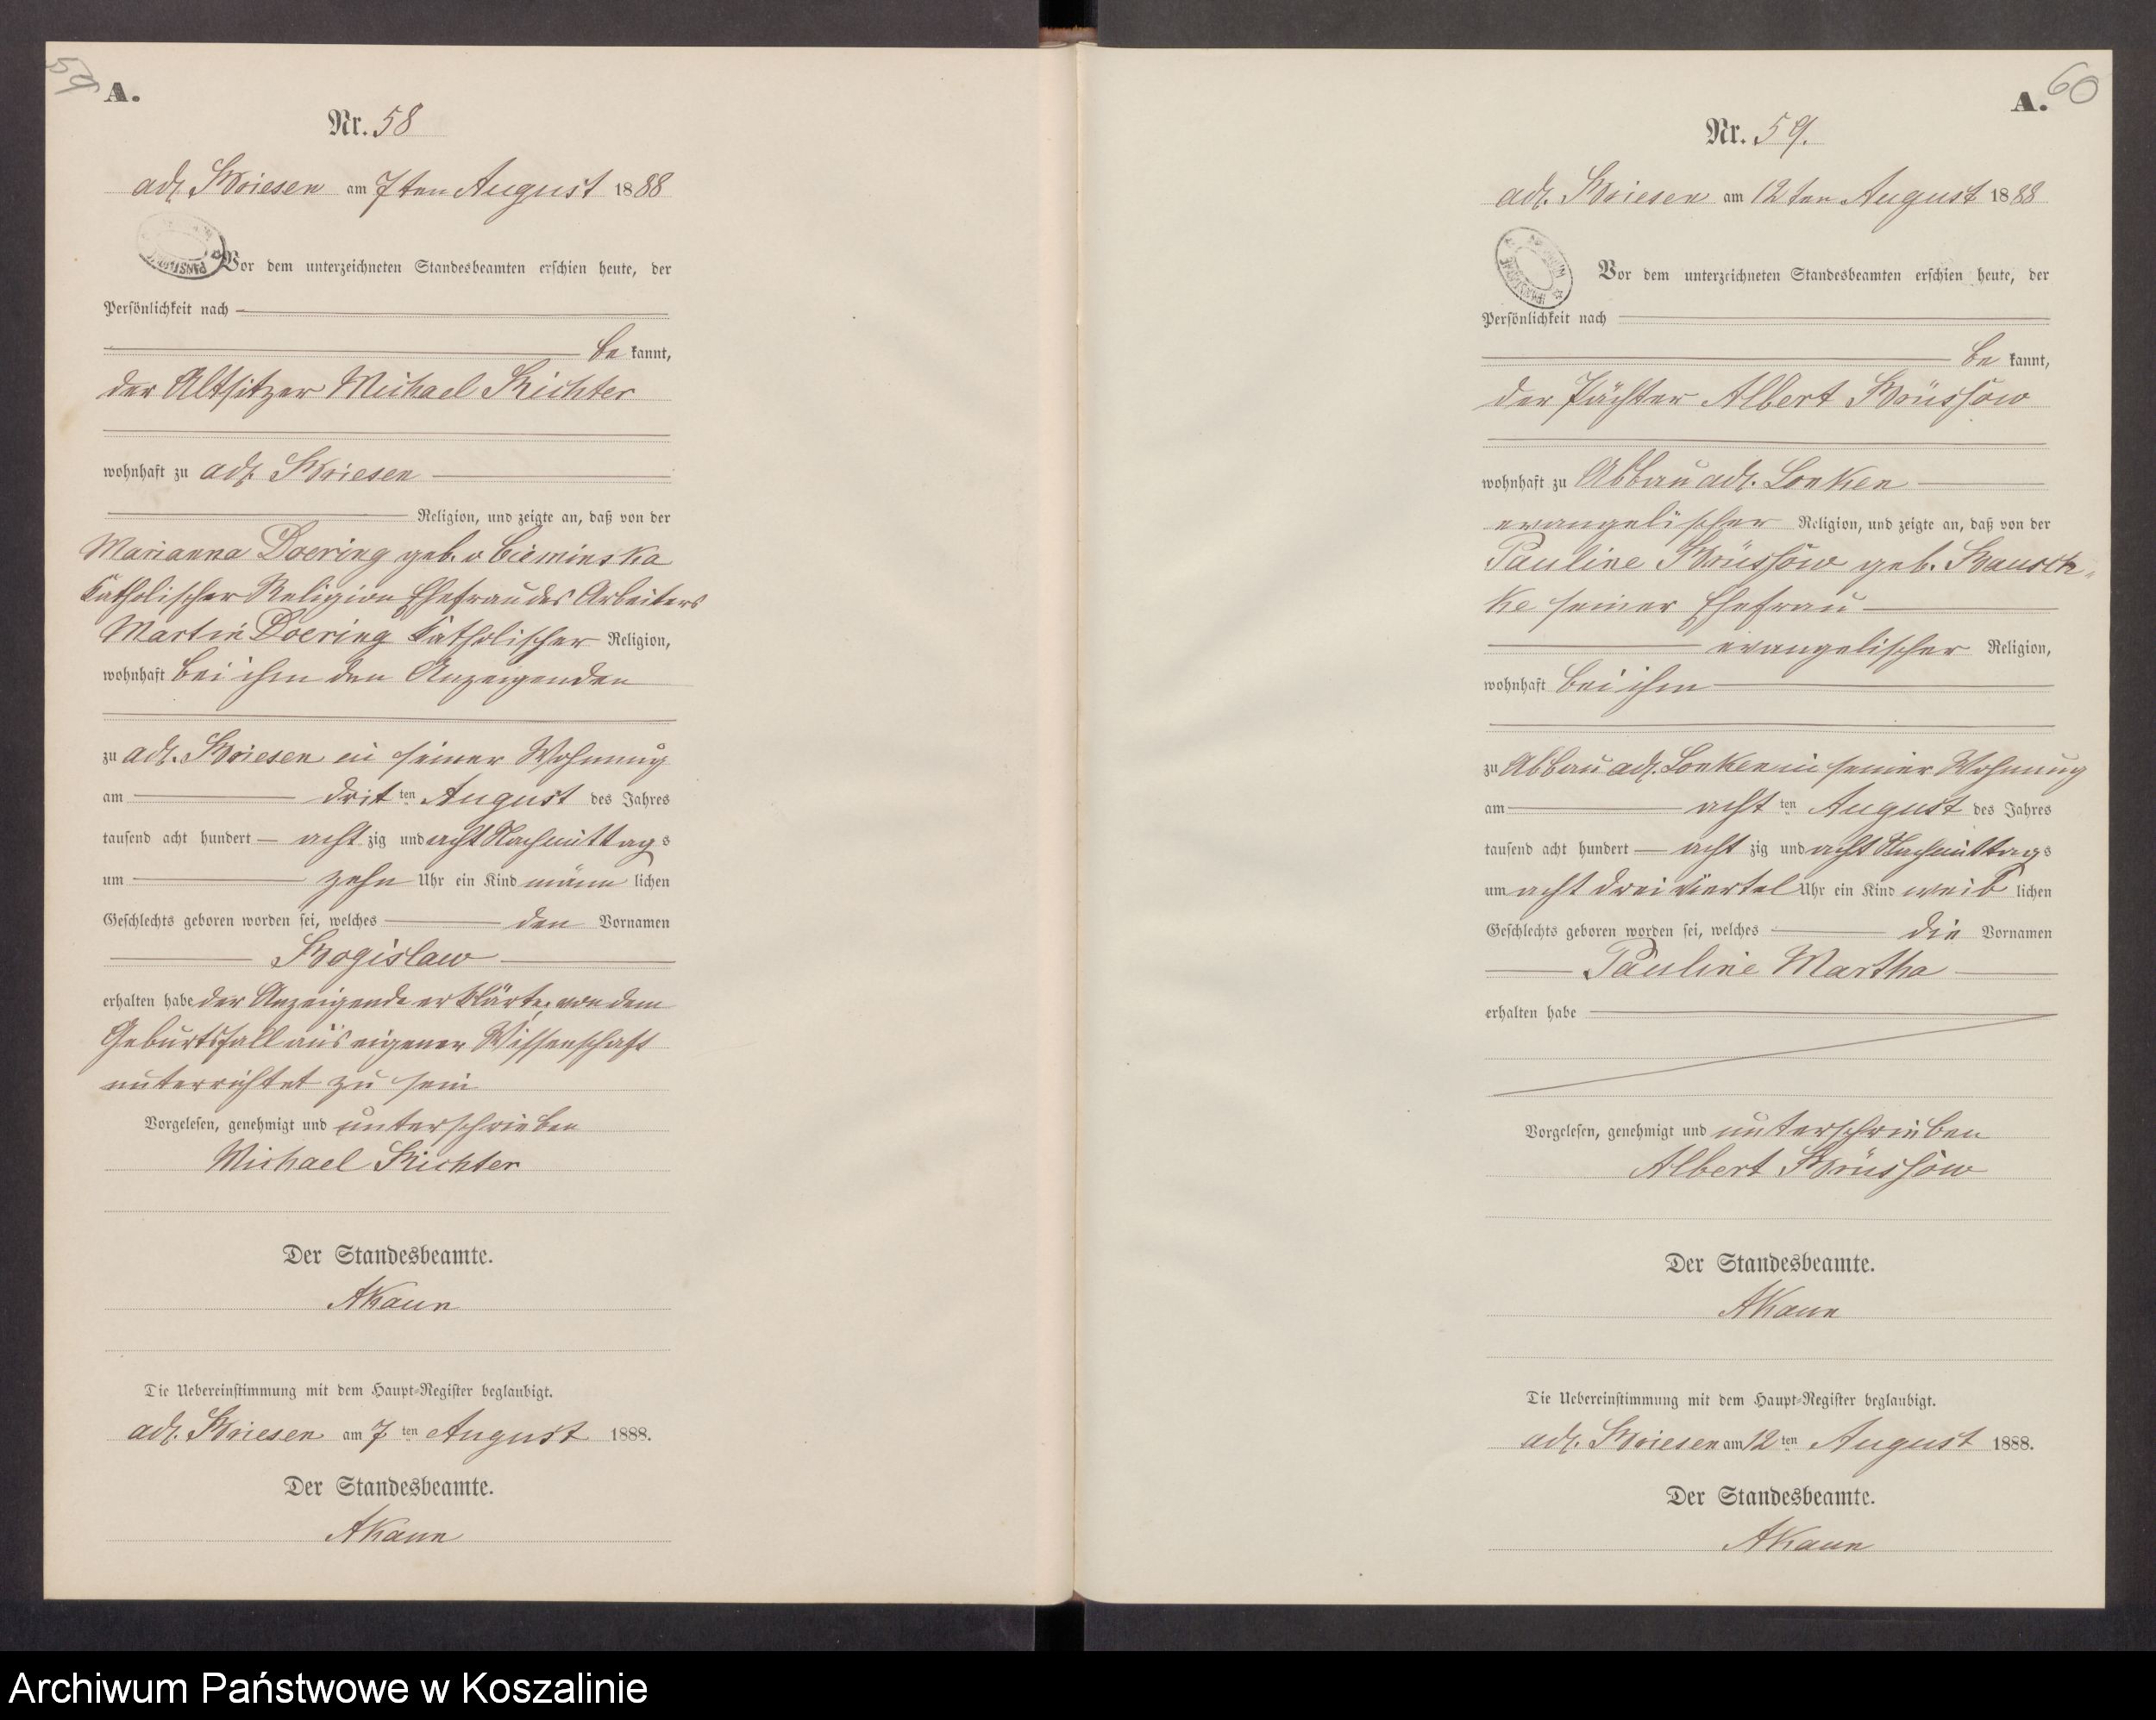 59
A.
Nr. 58
adl. Briesen am 7ten August 1888
Vor dem unterzeichneten Standesbeamten erschien heute, der
Persönlichkeit nach
be kannt,
der Altsitzer Michael Richter
wohnhaft zu adl. Briesen
Religion, und zeigte an, daß von der
Marianna Doering geb. v Cieminska
katholischer Religion Ehefrau des Arbeiters
Martin Doering katholischer Religion,
wohnhaft bei ihm den Anzeigenden
zu adl. Briesen in seiner Wohnung
am drit ten August des Jahres
tausend acht hundert acht zig und acht Nachmittags
um zehn Uhr ein Kind männ lichen
Geschlechts geboren worden sei, welches den Vornamen
Bogislaw
erhalten habe der Anzeigende erklärte, von dem
Geburtsfall aus eigener Wissenschaft
unterrichtet zu sein
Vorgelesen, genehmigt und unterschrieben
Michael Richter
Der Standesbeamte.
AKaun
Die Uebereinstimmung mit dem Haupt-Register beglaubigt.
adl. Briesen am 7 ten August 1888.
Der Standesbeamte.
AKaun
60
A.
Nr. 59.
adl. Briesen am 12ten August 1888
Vor dem unterzeichneten Standesbeamten erschien heute, der
Persönlichkeit nach
be kannt,
der Pächter Albert Brüssow
wohnhaft zu Abbau adl. Lonken
evangelischer Religion, und zeigte an, daß von der
Pauline Brüssow geb. Bausch-
ke seiner Ehefrau
evangelischer Religion,
wohnhaft bei ihm
zu Abbau adl. Lonken in seiner Wohnung
am acht ten August des Jahres
tausend acht hundert acht zig und acht Nachmittags
um acht dreiviertel Uhr ein Kind weib lichen
Geschlechts geboren worden sei, welches die Vornamen
Pauline Martha
erhalten habe
Vorgelesen, genehmigt und unterschrieben
Albert Brüssow
Der Standesbeamte.
AKaun
Die Uebereinstimmung mit dem Haupt-Register beglaubigt.
adl. Briesen am 12 ten August 1888.
Der Standesbeamte.
AKaun
Archiwum Państwowe w Koszalinie